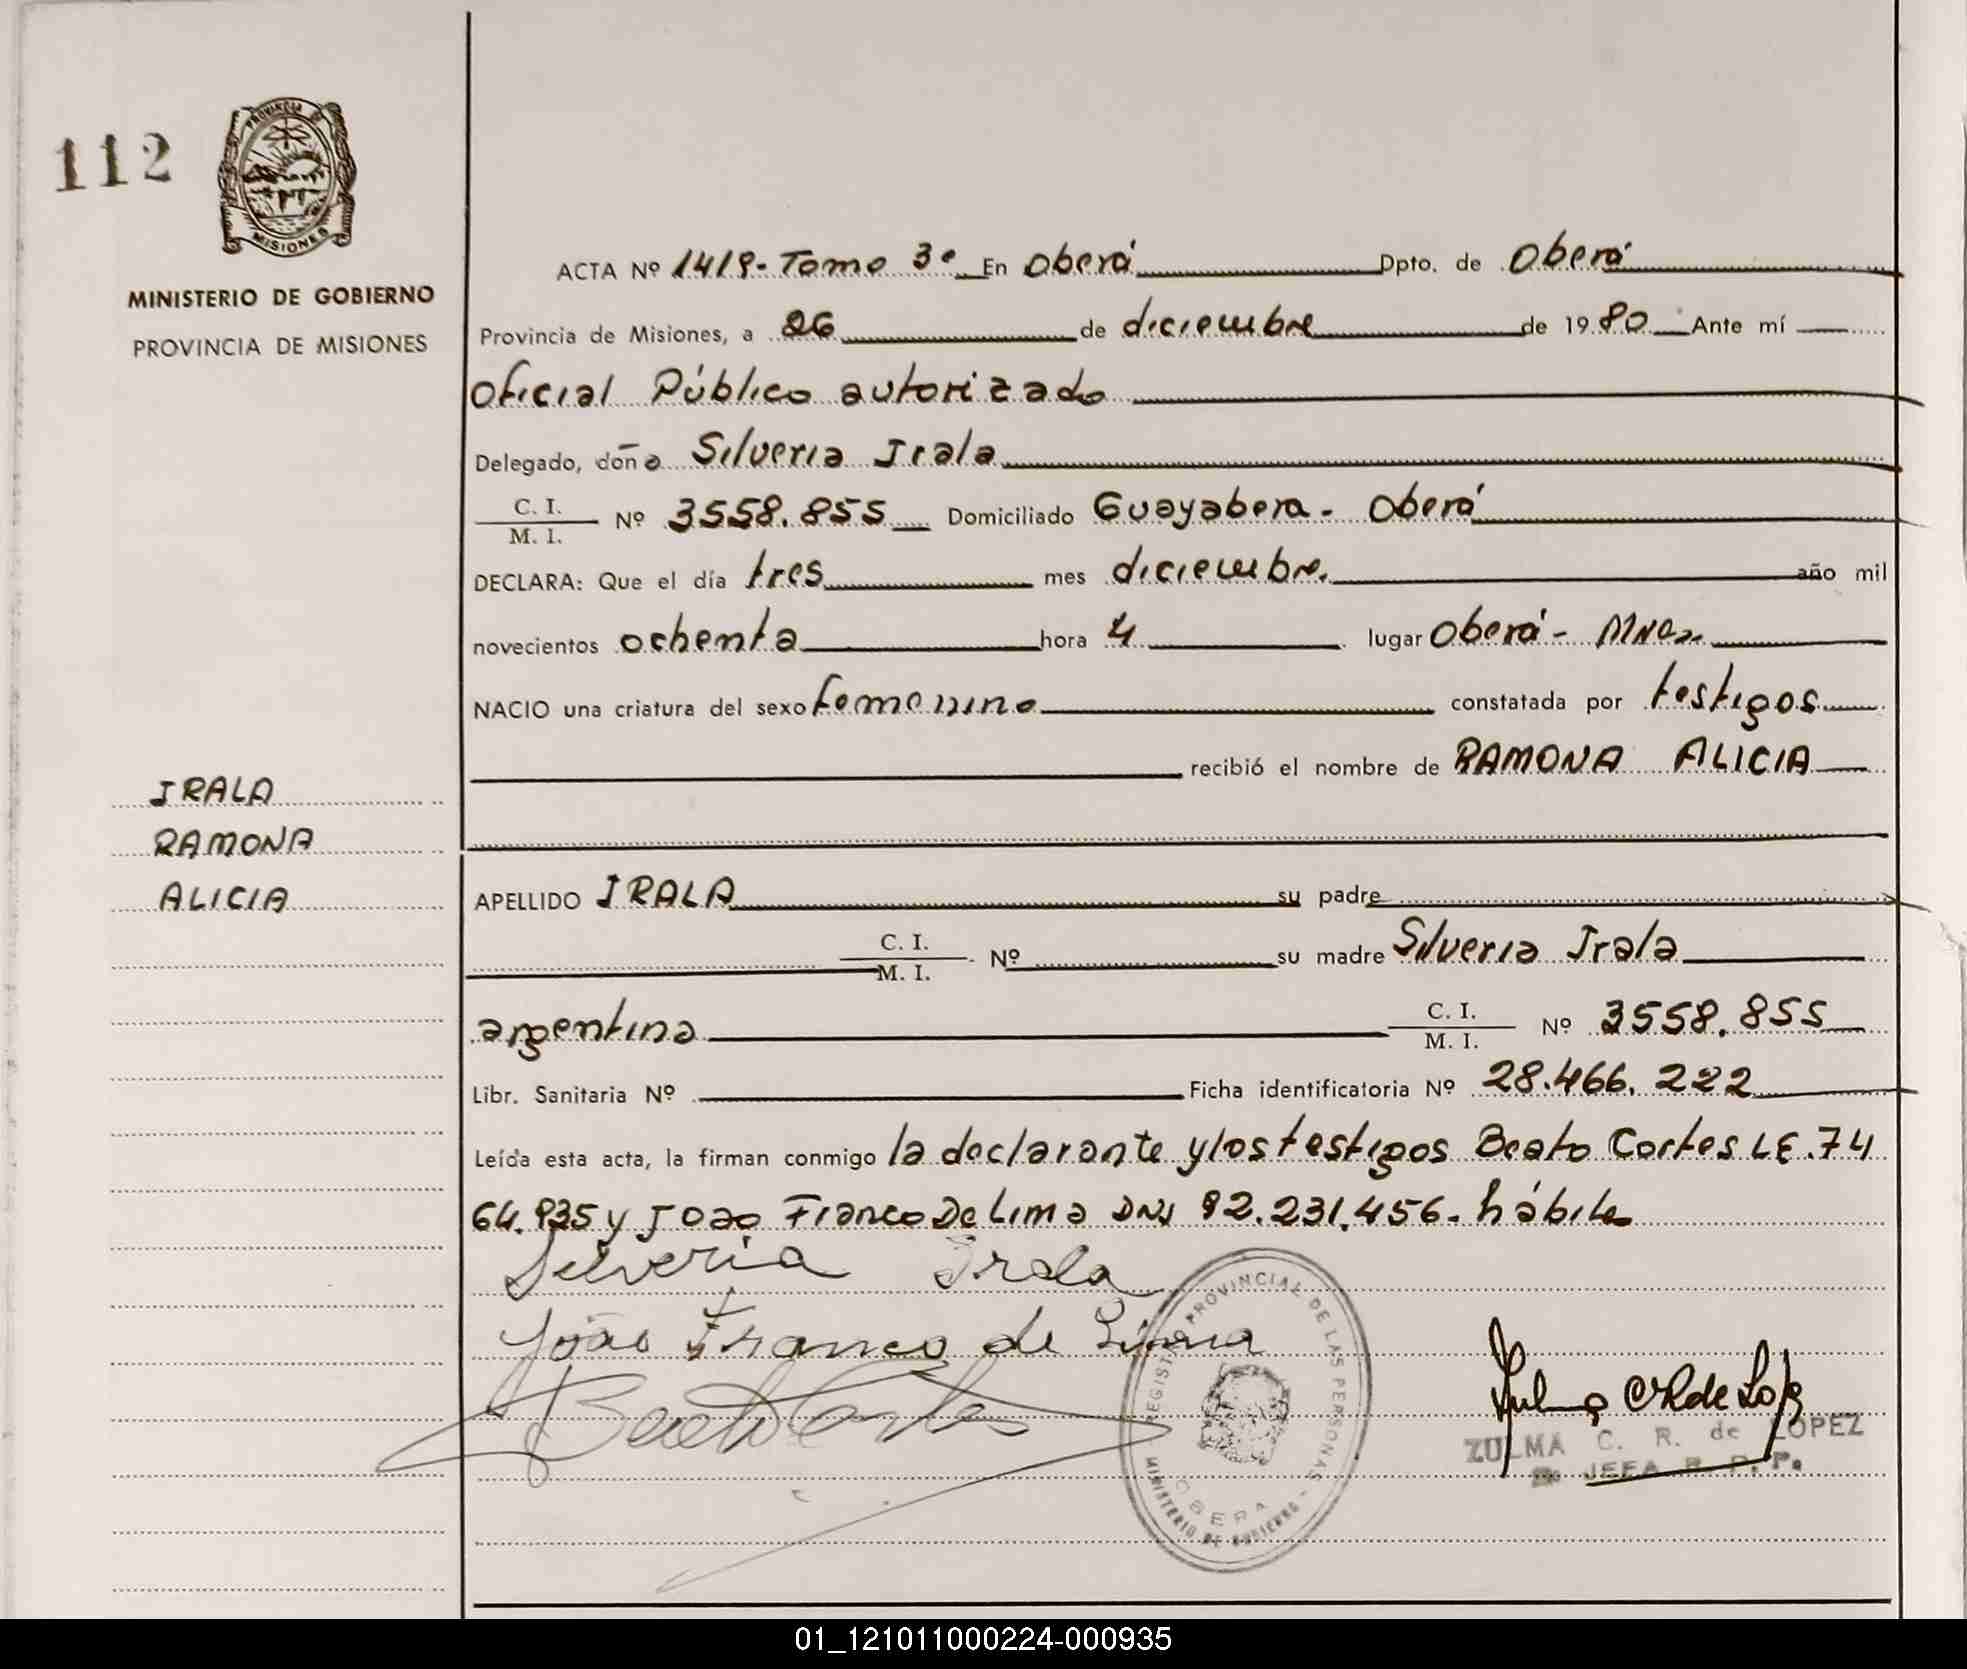 112
PROVINCIA DE
MISIONES
MINISTERIO DE GOBIERNO
PROVINCIA DE MISIONES
ACTA Nº 1419- Tomo 3º En Oberá Dpto. de Oberá
Provincia de Misiones, a 26 de diciembre de 1980 Ante mí
Oficial Público autorizado
Delegado, doña Silveria Irala
C. I.
M. I. Nº 3558.855 Domiciliado Guayabera - Oberá
DECLARA: Que el día tres mes diciembre año mil
novecientos ochenta hora 4 lugar Oberá - Mnes
NACIO una criatura del sexo femenino constatada por testigos
recibió el nombre de RAMONA ALICIA
IRALA
RAMONA
ALICIA
APELLIDO IRALA su padre
C. I.
M. I. Nº su madre Silveria Irala
argentina C. I.
M. I. Nº 3558.855
Libr. Sanitaria Nº Ficha identificatoria Nº 28.466.222
Leída esta acta, la firman conmigo la declarante y los testigos Beato Cortes LE. 74
64.935 y Joao Franco De Lima DNI 92.231.456. hábiles
Silveria Irala
João Franco de Lima
Beato Cortes
REGISTRO PROVINCIAL DE LAS PERSONAS
OBERA
MINISTERIO DE GOBIERNO
Zulma C R de Lopez
ZULMA C. R. de LOPEZ
JEFA R. P. P.
01_121011000224-000935